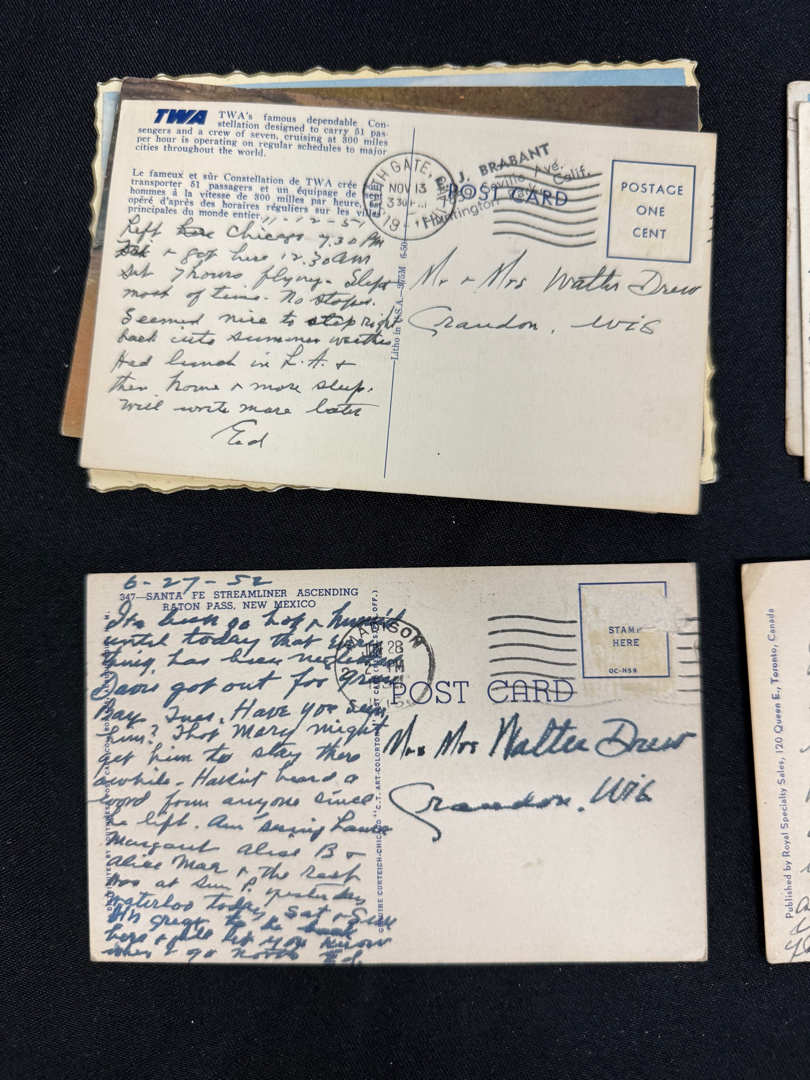 TWA TWA's famous dependable Con-
stellation designed to carry 51 pas-
sengers and a crew of seven, cruising at 300 miles
per hour is operating on regular schedules to major
cities throughout the world.
Le fameux et sûr Constellation de TWA crée
transporter 51 passagers et un équipage de
hommes à la vitesse de 300 milles par heure,
opéré d'après des horaires réguliers sur les
principales du monde entier.
Left Chicago 7.30 PM
& got here 12.30 AM
7 hours flying. Slept
most of time. No stops.
Seemed nice to step right
back into summer weather
Had lunch in L.A. &
then home & more sleep.
Will write more later
Ed
Litho in U.S.A.
GATE,
NOV 13
330 PM
J. BRABANT
Ave.
Huntington Calif.
POST CARD
POSTAGE
ONE
CENT
Mr & Mrs Walter Drew
Crandon, Wis
6-27-52
347—SANTA FE STREAMLINER ASCENDING
RATON PASS, NEW MEXICO
until today that
thing has been
Davis got out for Green
Bay Tues. Have you seen
him? Thot Mary might
get him to stay there
awhile. Havent heard a
word from anyone since
he left. Am seeing
Margaret Alice B &
Alice Mae & the rest
was at Sun P. yesterday
Waterloo today Sat & Sun
great to be back
here & will let you know
when I go north Ed.
GENUINE CURTEICH-CHICAGO "C.T. ART-COLORTONE" POST CARD
MADISON
JUN 28
PM
POST CARD
STAMP
HERE
OC-H59
Mr & Mrs Walter Drew
Crandon, Wis
Published by Royal Specialty Sales, 120 Queen E., Toronto, Canada